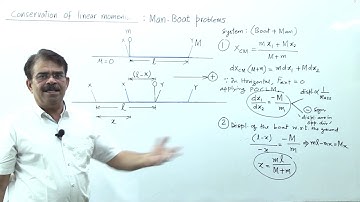 Conservation of linear momen... : Man-Boat problems
m
M
μ=0
l
(l-x)
x
x
Y
l
x
system: (Boat + Man)
① X_CM = mx₁ + Mx₂ / M+m
dX_CM (M+m) = mdx₁ + Mdx₂
∵ In Horizontal, Fext = 0
applying POCLM
dx₁ / dx₂ = -M / m
displ α 1 / mass
- sign
displ are in
opp. dirⁿ
② Displ of the boat w.r.t. the ground
(l-x) / -x = -M / m ⇒ ml - mx = Mx
x = ml / M+m